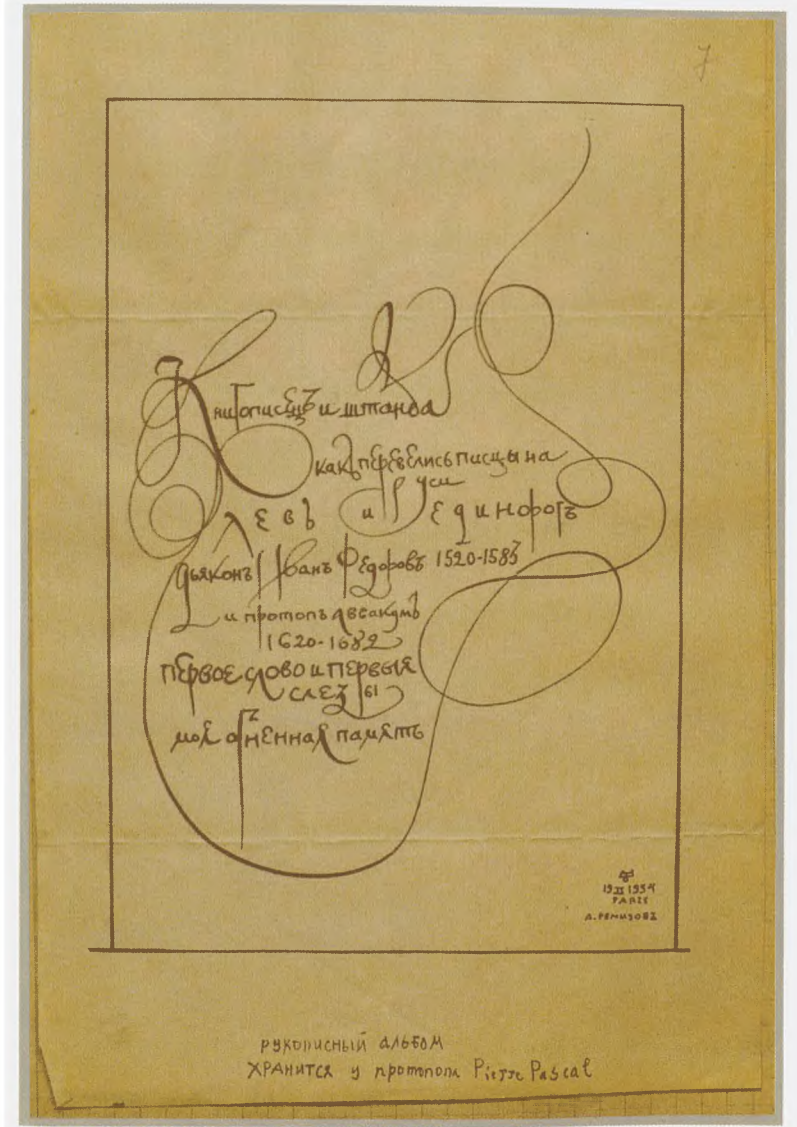 7
Книгописецъ и штанба
какъ перевелись писцы на
Руси
левъ и единорогъ
дьяконъ Иванъ Федоровъ 1520-1583
и протопъ Аввакумъ
1620-1682
первое слово и первыя
слезы
моя огненная память
19 II 1954
PARIS
А. Ремизовъ
рукописный альбом
хранится у протопопа Pierre Pascal